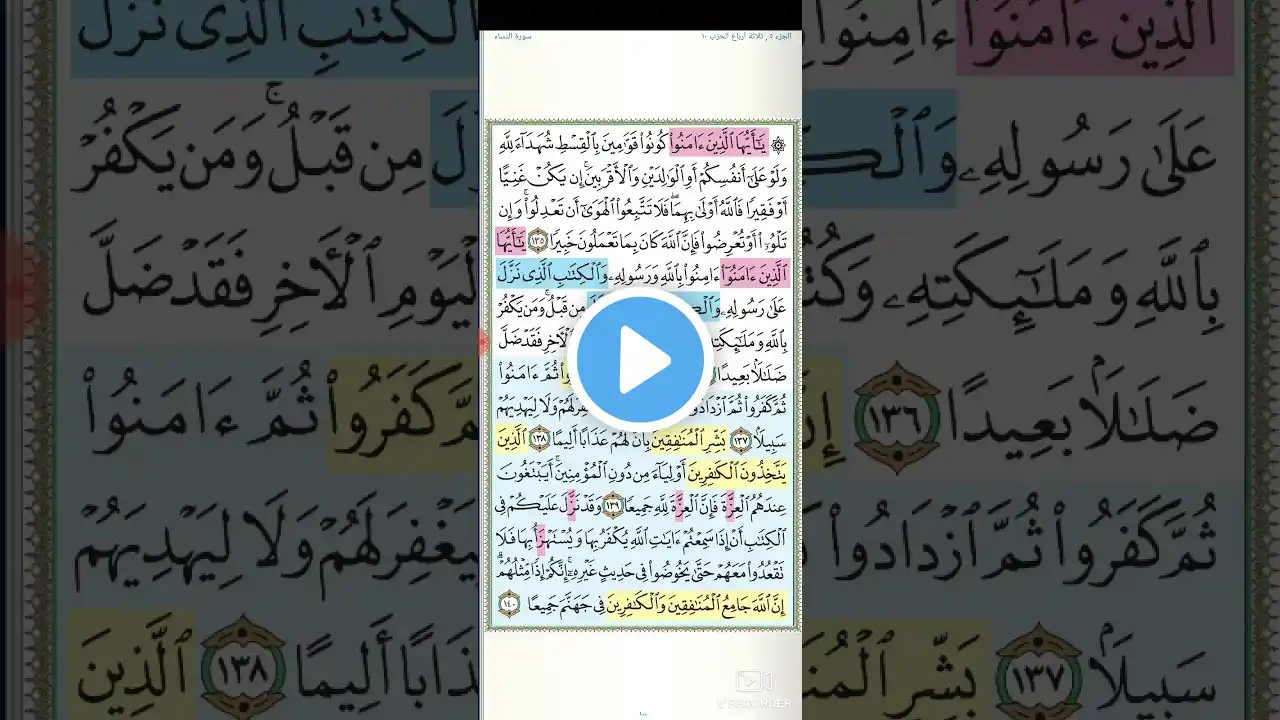 الجزء ٥ , ثلاثة أرباع الحزب ١٠
سورة النساء
۞ يَـٰٓأَيُّهَا ٱلَّذِينَ ءَامَنُوا۟ كُونُوا۟ قَوَّٰمِينَ بِٱلْقِسْطِ شُهَدَآءَ لِلَّهِ
وَلَوْ عَلَىٰٓ أَنفُسِكُمْ أَوِ ٱلْوَٰلِدَيْنِ وَٱلْأَقْرَبِينَ ۚ إِن يَكُنْ غَنِيًّا
أَوْ فَقِيرًا فَٱللَّهُ أَوْلَىٰ بِهِمَا ۖ فَلَا تَتَّبِعُوا۟ ٱلْهَوَىٰٓ أَن تَعْدِلُوا۟ ۚ وَإِن
تَلْوُۥٓا۟ أَوْ تُعْرِضُوا۟ فَإِنَّ ٱللَّهَ كَانَ بِمَا تَعْمَلُونَ خَبِيرًا ١٣٥ يَـٰٓأَيُّهَا
ٱلَّذِينَ ءَامَنُوٓا۟ ءَامِنُوا۟ بِٱللَّهِ وَرَسُولِهِۦ وَٱلْكِتَـٰبِ ٱلَّذِى نَزَّلَ
عَلَىٰ رَسُولِهِۦ مِن قَبْلُ ۚ وَمَن يَكْفُرْ
بِٱللَّهِ وَمَلَـٰٓئِكَتِهِۦ ٱلْـَٔاخِرِ فَقَدْ ضَلَّ
ضَلَـٰلًۢا بَعِيدًا ثُمَّ ءَامَنُوا۟
ثُمَّ كَفَرُوا۟ ثُمَّ ٱزْدَادُوا۟ لِيَغْفِرَ لَهُمْ وَلَا لِيَهْدِيَهُمْ
سَبِيلًۢا ١٣٧ بَشِّرِ ٱلْمُنَـٰفِقِينَ بِأَنَّ لَهُمْ عَذَابًا أَلِيمًا ١٣٨ ٱلَّذِينَ
يَتَّخِذُونَ ٱلْكَـٰفِرِينَ أَوْلِيَآءَ مِن دُونِ ٱلْمُؤْمِنِينَ ۚ أَيَبْتَغُونَ
عِندَهُمُ ٱلْعِزَّةَ فَإِنَّ ٱلْعِزَّةَ لِلَّهِ جَمِيعًا ١٣٩ وَقَدْ نَزَّلَ عَلَيْكُمْ فِى
ٱلْكِتَـٰبِ أَنْ إِذَا سَمِعْتُمْ ءَايَـٰتِ ٱللَّهِ يُكْفَرُ بِهَا وَيُسْتَهْزَأُ بِهَا فَلَا
تَقْعُدُوا۟ مَعَهُمْ حَتَّىٰ يَخُوضُوا۟ فِى حَدِيثٍ غَيْرِهِۦٓ ۚ إِنَّكُمْ إِذًا مِّثْلُهُمْ ۗ
إِنَّ ٱللَّهَ جَامِعُ ٱلْمُنَـٰفِقِينَ وَٱلْكَـٰفِرِينَ فِى جَهَنَّمَ جَمِيعًا ١٤٠
V RECORDER
١٠٠